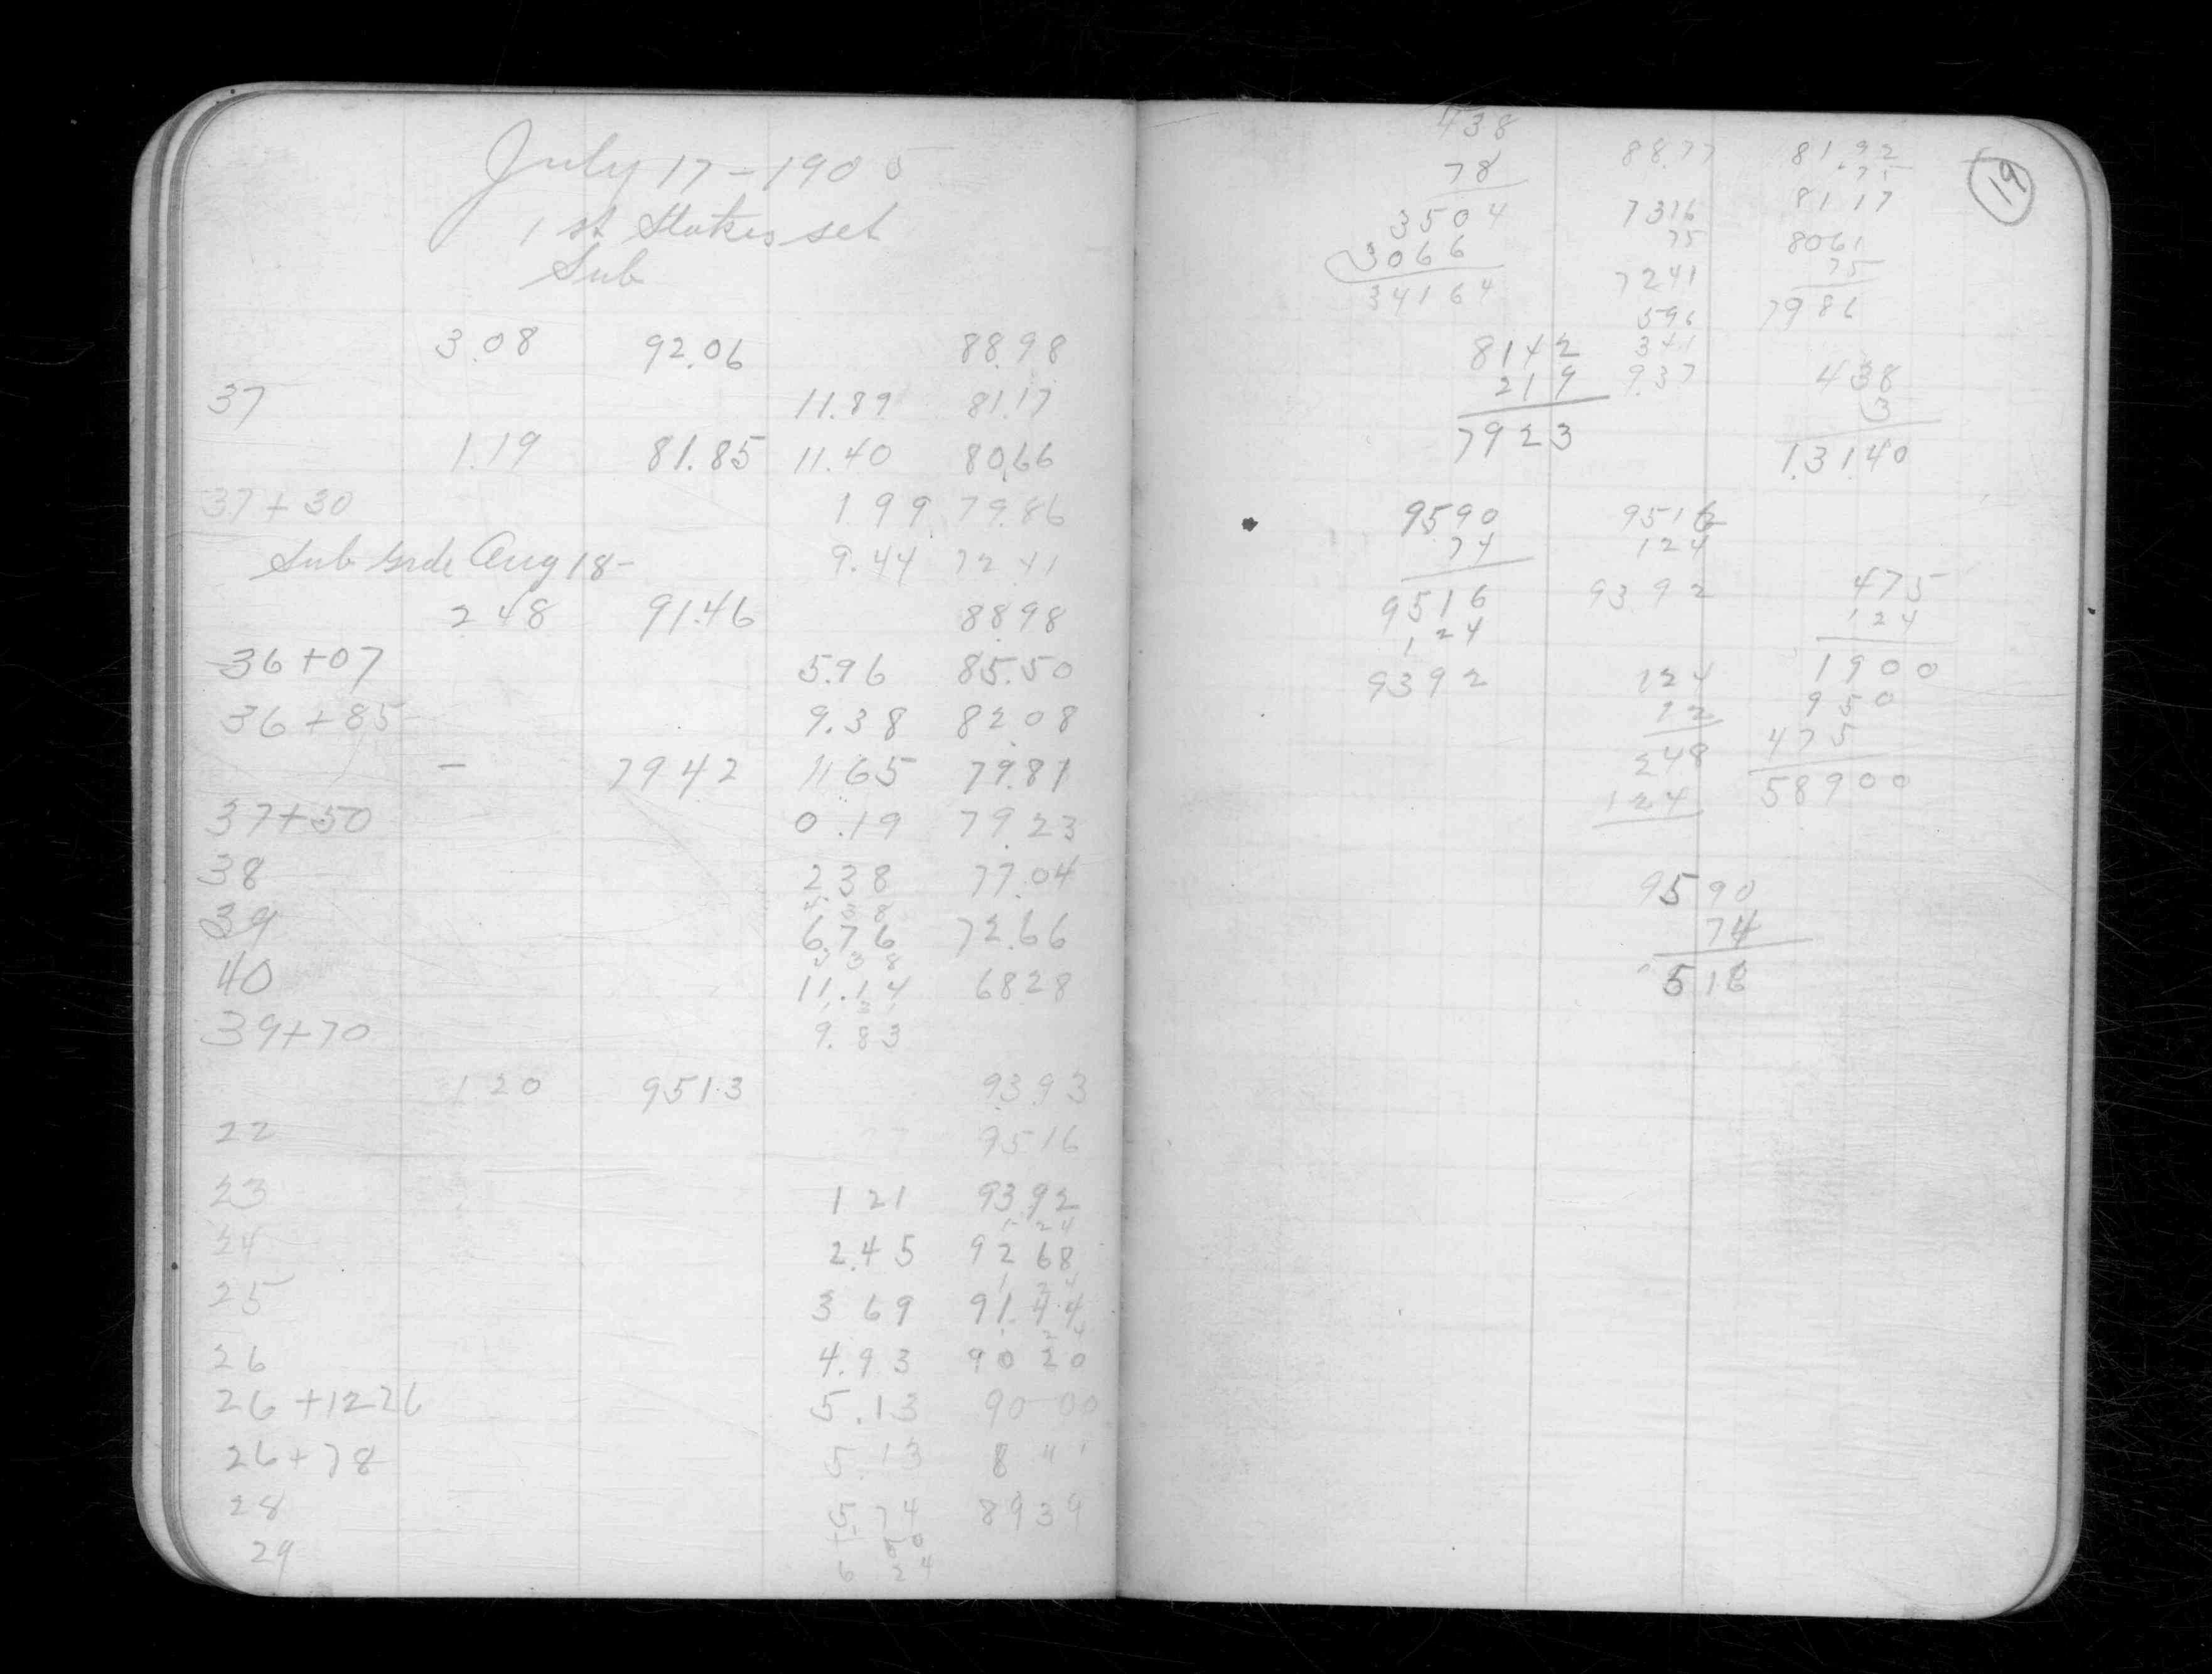 July 17-1905
1st Stakes set
Sub
3.08 92.06 88.98
37 11.89 81.17
1.19 81.85 11.40 80.66
37+30 1.99 79.86
Sub Grde Aug 18- 9.44 72.41
2.48 91.46 88.98
36+07 5.96 85.50
36+85 9.38 82.08
- 79.42 11.65 79.81
37+50 0.19 79.23
38 2.38 77.04
4 38
39 6.76 72.66
4 38
40 11.14 68.28
39+70 9.83
1.20 95.13 93.93
22 95.16
23 1.21 93.92
1 24
24 2.45 92.68
1 24
25 3.69 91.44
1 24
26 4.93 90.20
26+1226 5.13 90.00
26+78 5.13 8 " "
28 5.74 89.39
29 6 24
19
438
78
3504
3066
34164
88.77
7316
75
7241
596
341
9.37
81.92
.75
81 17
8061
75
7986
8142
219
7923
438
3
1.3140
9590
74
9516
1 24
9392
9516
124
93.92
475
124
1900
950
475
58900
124
12
248
124
9590
74
9516